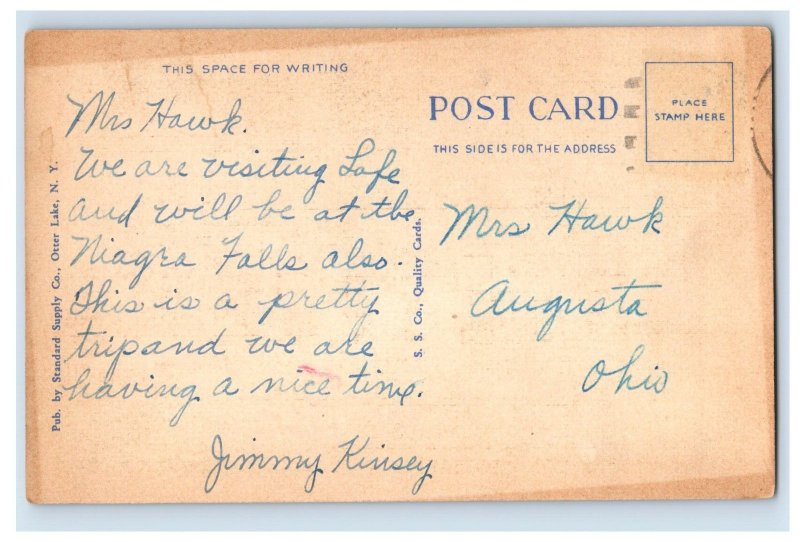 THIS SPACE FOR WRITING
Mrs Hawk.
We are visiting Lafe
and will be at the
Niagra Falls also.
This is a pretty
trip and we are
having a nice time.
Jimmy Kinsey
Pub. by Standard Supply Co., Otter Lake, N. Y.
S. S. Co., Quality Cards.
POST CARD
THIS SIDE IS FOR THE ADDRESS
PLACE
STAMP HERE
Mrs Hawk
Augusta
Ohio